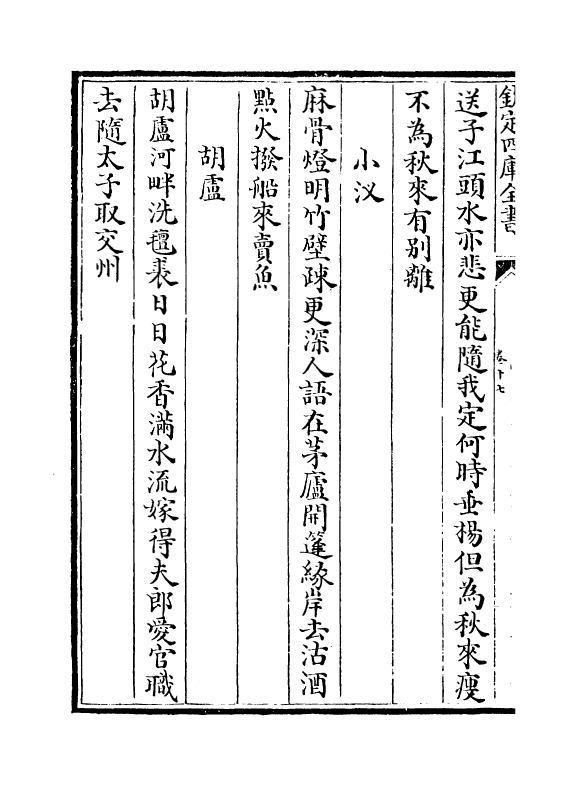 欽定四庫全書
卷十七
送子江頭水亦悲更能隨我定何時垂楊但為秋來瘦
不為秋來有别離
小汊
麻骨燈明竹壁疎更深人語在茅廬開篷緣岸去沽酒
點火撥船來賣魚
胡盧
胡盧河畔洗氊裘日日花香滿水流嫁得夫郎愛官職
去隨太子取交州